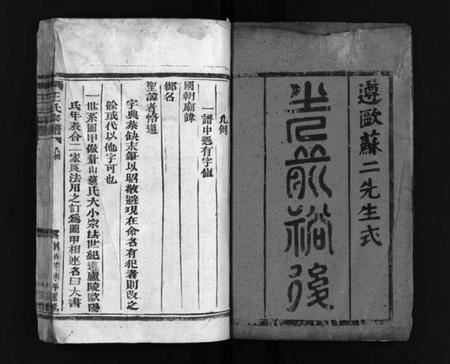 遵歐蘇二先生式
光前裕後
凡例
一譜中遇有字值
國朝廟諱
御名
聖諱者恪遵
字典恭缺末筆以昭敬避現在命名有犯者則改之
餘或代以他字可也
一世系圖甲倣眉山蘇氏大小宗法世紀遵廬陵歐陽
氏年表合二家良法用之訂爲圖甲相連名曰大書
氏宗譜
凡例